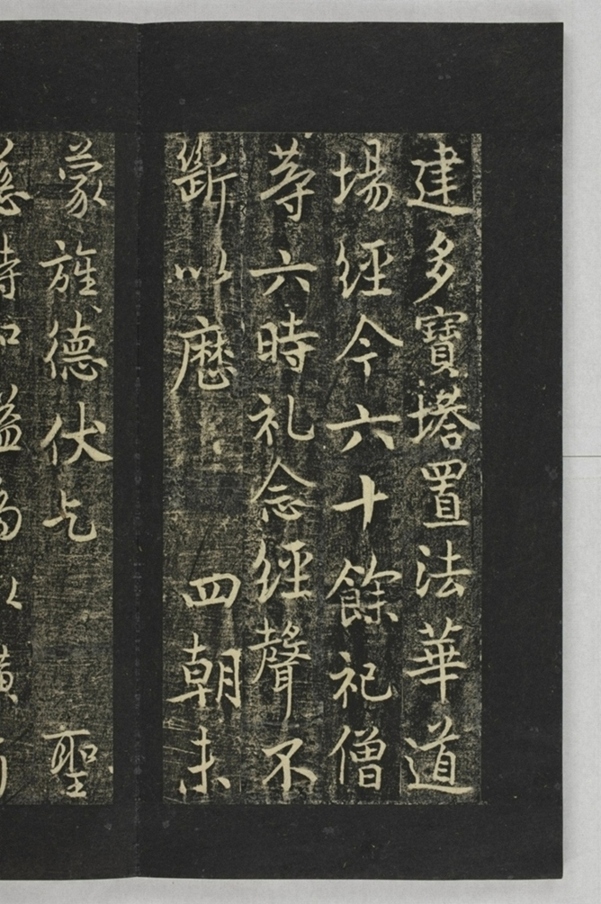 建多寶塔置法華道
場經今六十餘祀僧
等六時礼念經聲不
斷以曆 四朝未
蒙旌德伏乞 聖